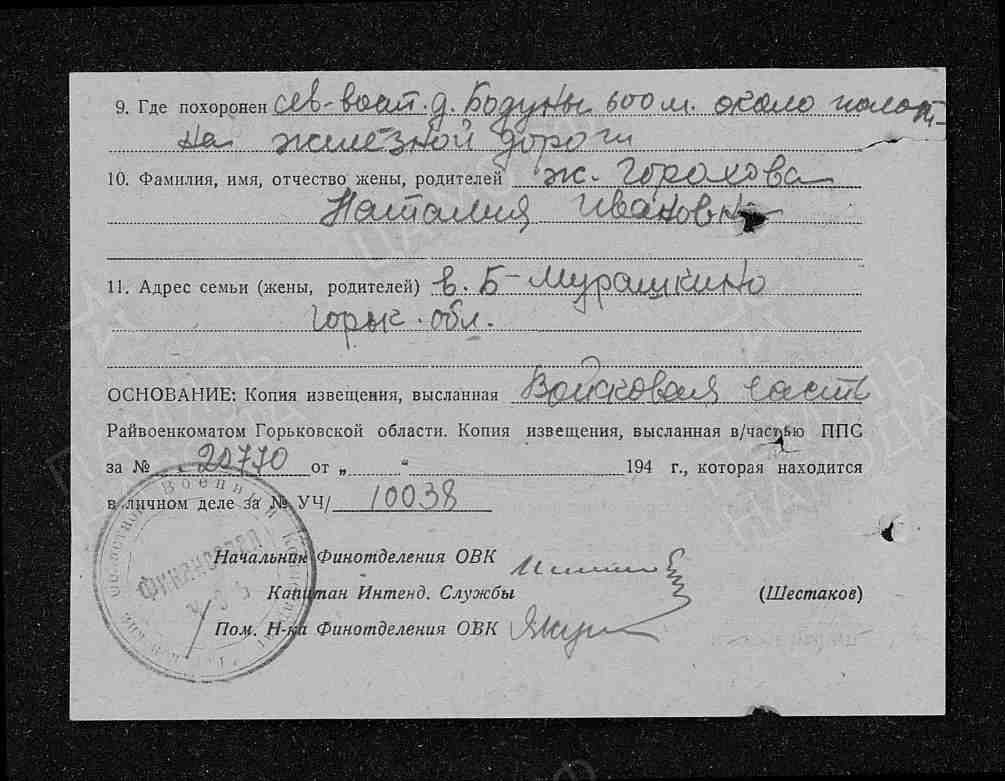 9. Где похоронен сев-вост. д. Бодуны 600 м. около полот-
на железной дороги
10. Фамилия, имя, отчество жены, родителей ж. Горохова
Наталия Ивановн
11. Адрес семьи (жены, родителей) в. Б-Мурашкино
Горьк. обл.
ОСНОВАНИЕ: Копия извещения, высланная Войсковая часть
Райвоенкоматом Горьковской области. Копия извещения, высланная в/частью ППС
за № 20770 от „ “ 194 г., которая находится
в личном деле за № УЧ/ 10038
Начальник Финотделения ОВК
Капитан Интенд. Службы (Шестаков)
Пом. Н-ка Финотделения ОВК Якун
Областной Военный
ПАМЯТЬ
НАРОДА